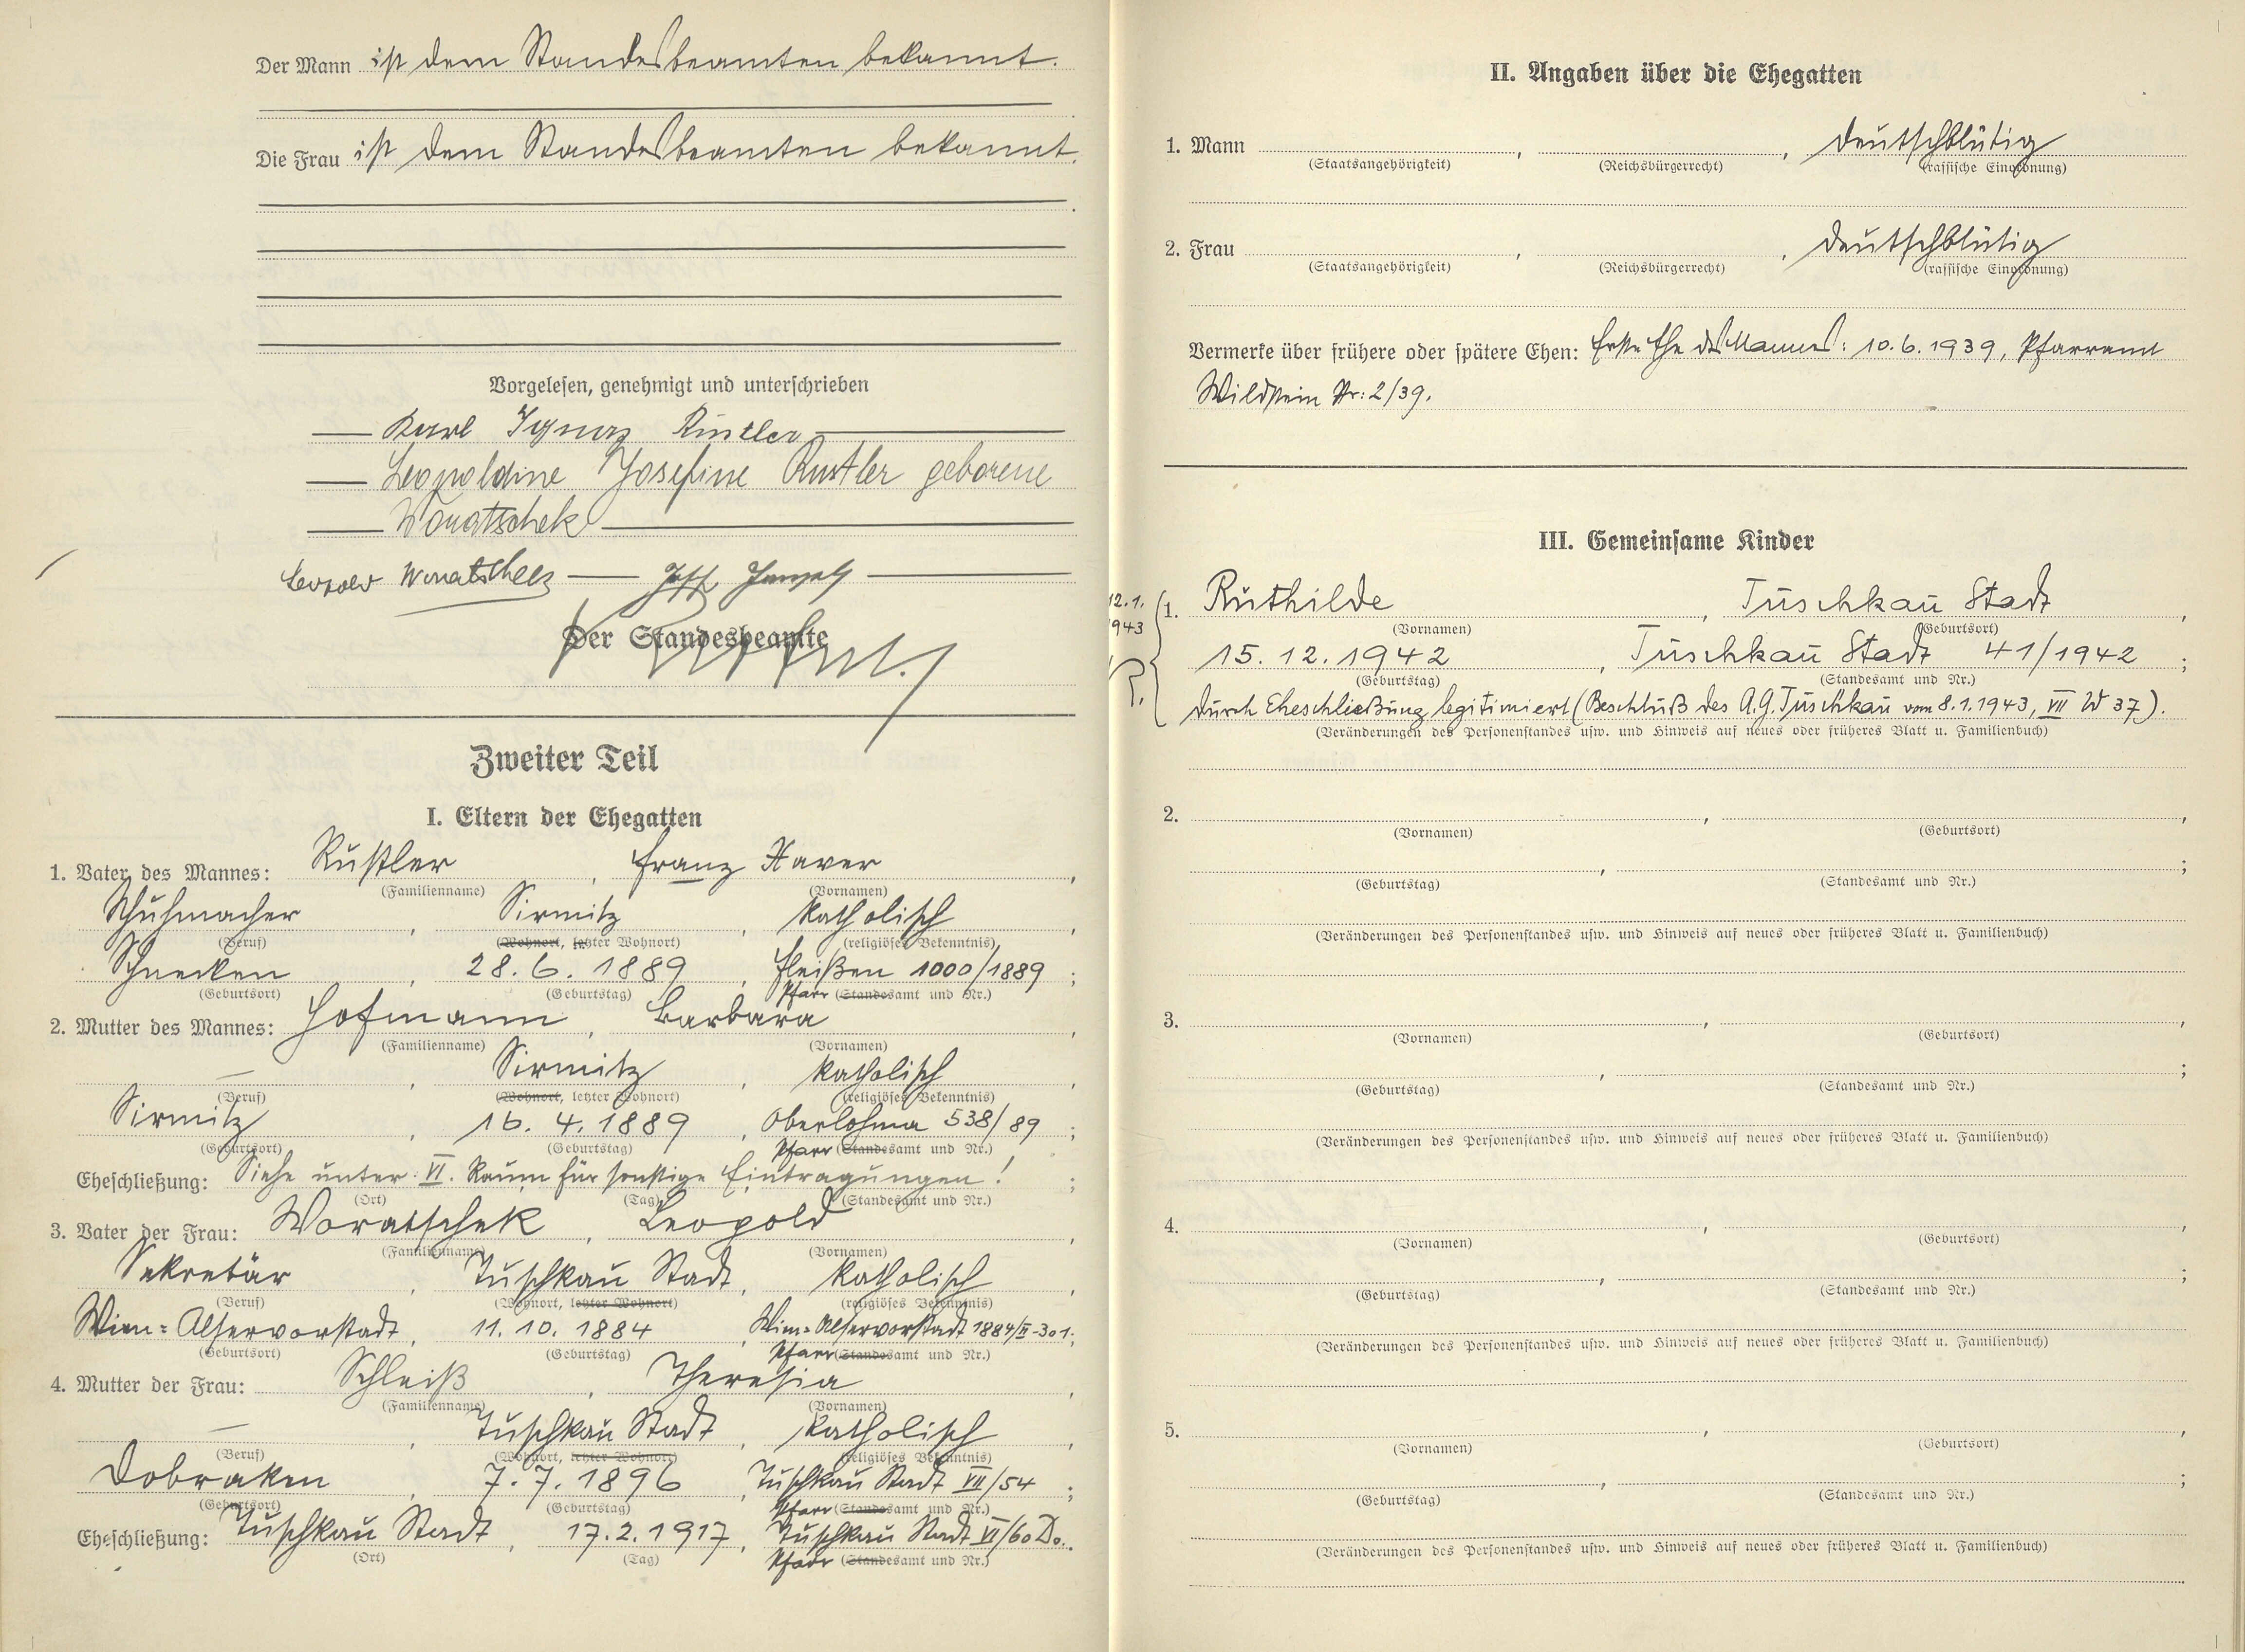 Der Mann ist dem Standesbeamten bekannt.
Die Frau ist dem Standesbeamten bekannt.
Vorgelesen, genehmigt und unterschrieben
Karl Ignaz Rustler
Leopoldine Josefine Rustler geborene
Woratschek
Leopold Woratschek
Der Standesbeamte
Zweiter Teil
I. Eltern der Ehegatten
1. Vater des Mannes: Rustler, Franz Xaver,
(Familienname) (Vornamen)
Schuhmacher, Sirmitz, katholisch,
(Beruf) (Wohnort, letzter Wohnort) (religiöses Bekenntnis)
Schnecken, 28.6.1889, Fleißen 1000/1889;
(Geburtsort) (Geburtstag) Pfarr (Standesamt und Nr.)
2. Mutter des Mannes: Hofmann, Barbara,
(Familienname) (Vornamen)
—, Sirmitz, katholisch,
(Beruf) (Wohnort, letzter Wohnort) (religiöses Bekenntnis)
Sirmitz, 16.4.1889, Oberlohma 538/89;
(Geburtsort) (Geburtstag) Pfarr (Standesamt und Nr.)
Eheschließung: Siehe unter: VI. Raum für sonstige Eintragungen!;
(Ort) (Tag) (Standesamt und Nr.)
3. Vater der Frau: Woratschek, Leopold,
(Familienname) (Vornamen)
Sekretär, Tuschkau Stadt, katholisch,
(Beruf) (Wohnort, letzter Wohnort) (religiöses Bekenntnis)
Wien=Alservorstadt, 11.10.1884, Wien=Alservorstadt 1884/II-301;
(Geburtsort) (Geburtstag) Pfarr (Standesamt und Nr.)
4. Mutter der Frau: Schleiß, Theresia,
(Familienname) (Vornamen)
—, Tuschkau Stadt, katholisch,
(Beruf) (Wohnort, letzter Wohnort) (religiöses Bekenntnis)
Dobraken, 7.7.1896, Tuschkau Stadt VII/54;
(Geburtsort) (Geburtstag) Pfarr (Standesamt und Nr.)
Eheschließung: Tuschkau Stadt, 17.2.1917, Tuschkau Stadt VI/60 Do.
(Ort) (Tag) Pfarr (Standesamt und Nr.)
II. Angaben über die Ehegatten
1. Mann , , deutschblütig
(Staatsangehörigkeit) (Reichsbürgerrecht) (rassische Einordnung)
2. Frau , , deutschblütig
(Staatsangehörigkeit) (Reichsbürgerrecht) (rassische Einordnung)
Vermerke über frühere oder spätere Ehen: Erste Ehe des Mannes: 10.6.1939, Pfarramt
Wildstein Nr: 2/39.
III. Gemeinsame Kinder
12.1.
1943
1. Ruthilde, Tuschkau Stadt,
(Vornamen) (Geburtsort)
15.12.1942, Tuschkau Stadt 41/1942;
(Geburtstag) (Standesamt und Nr.)
durch Eheschließung legitimiert (Beschluß des A.G. Tuschkau vom 8.1.1943, VII W 37).
(Veränderungen des Personenstandes usw. und Hinweis auf neues oder früheres Blatt u. Familienbuch)
2. , ,
(Vornamen) (Geburtsort)
, ;
(Geburtstag) (Standesamt und Nr.)
(Veränderungen des Personenstandes usw. und Hinweis auf neues oder früheres Blatt u. Familienbuch)
3. , ,
(Vornamen) (Geburtsort)
, ;
(Geburtstag) (Standesamt und Nr.)
(Veränderungen des Personenstandes usw. und Hinweis auf neues oder früheres Blatt u. Familienbuch)
4. , ,
(Vornamen) (Geburtsort)
, ;
(Geburtstag) (Standesamt und Nr.)
(Veränderungen des Personenstandes usw. und Hinweis auf neues oder früheres Blatt u. Familienbuch)
5. , ,
(Vornamen) (Geburtsort)
, ;
(Geburtstag) (Standesamt und Nr.)
(Veränderungen des Personenstandes usw. und Hinweis auf neues oder früheres Blatt u. Familienbuch)